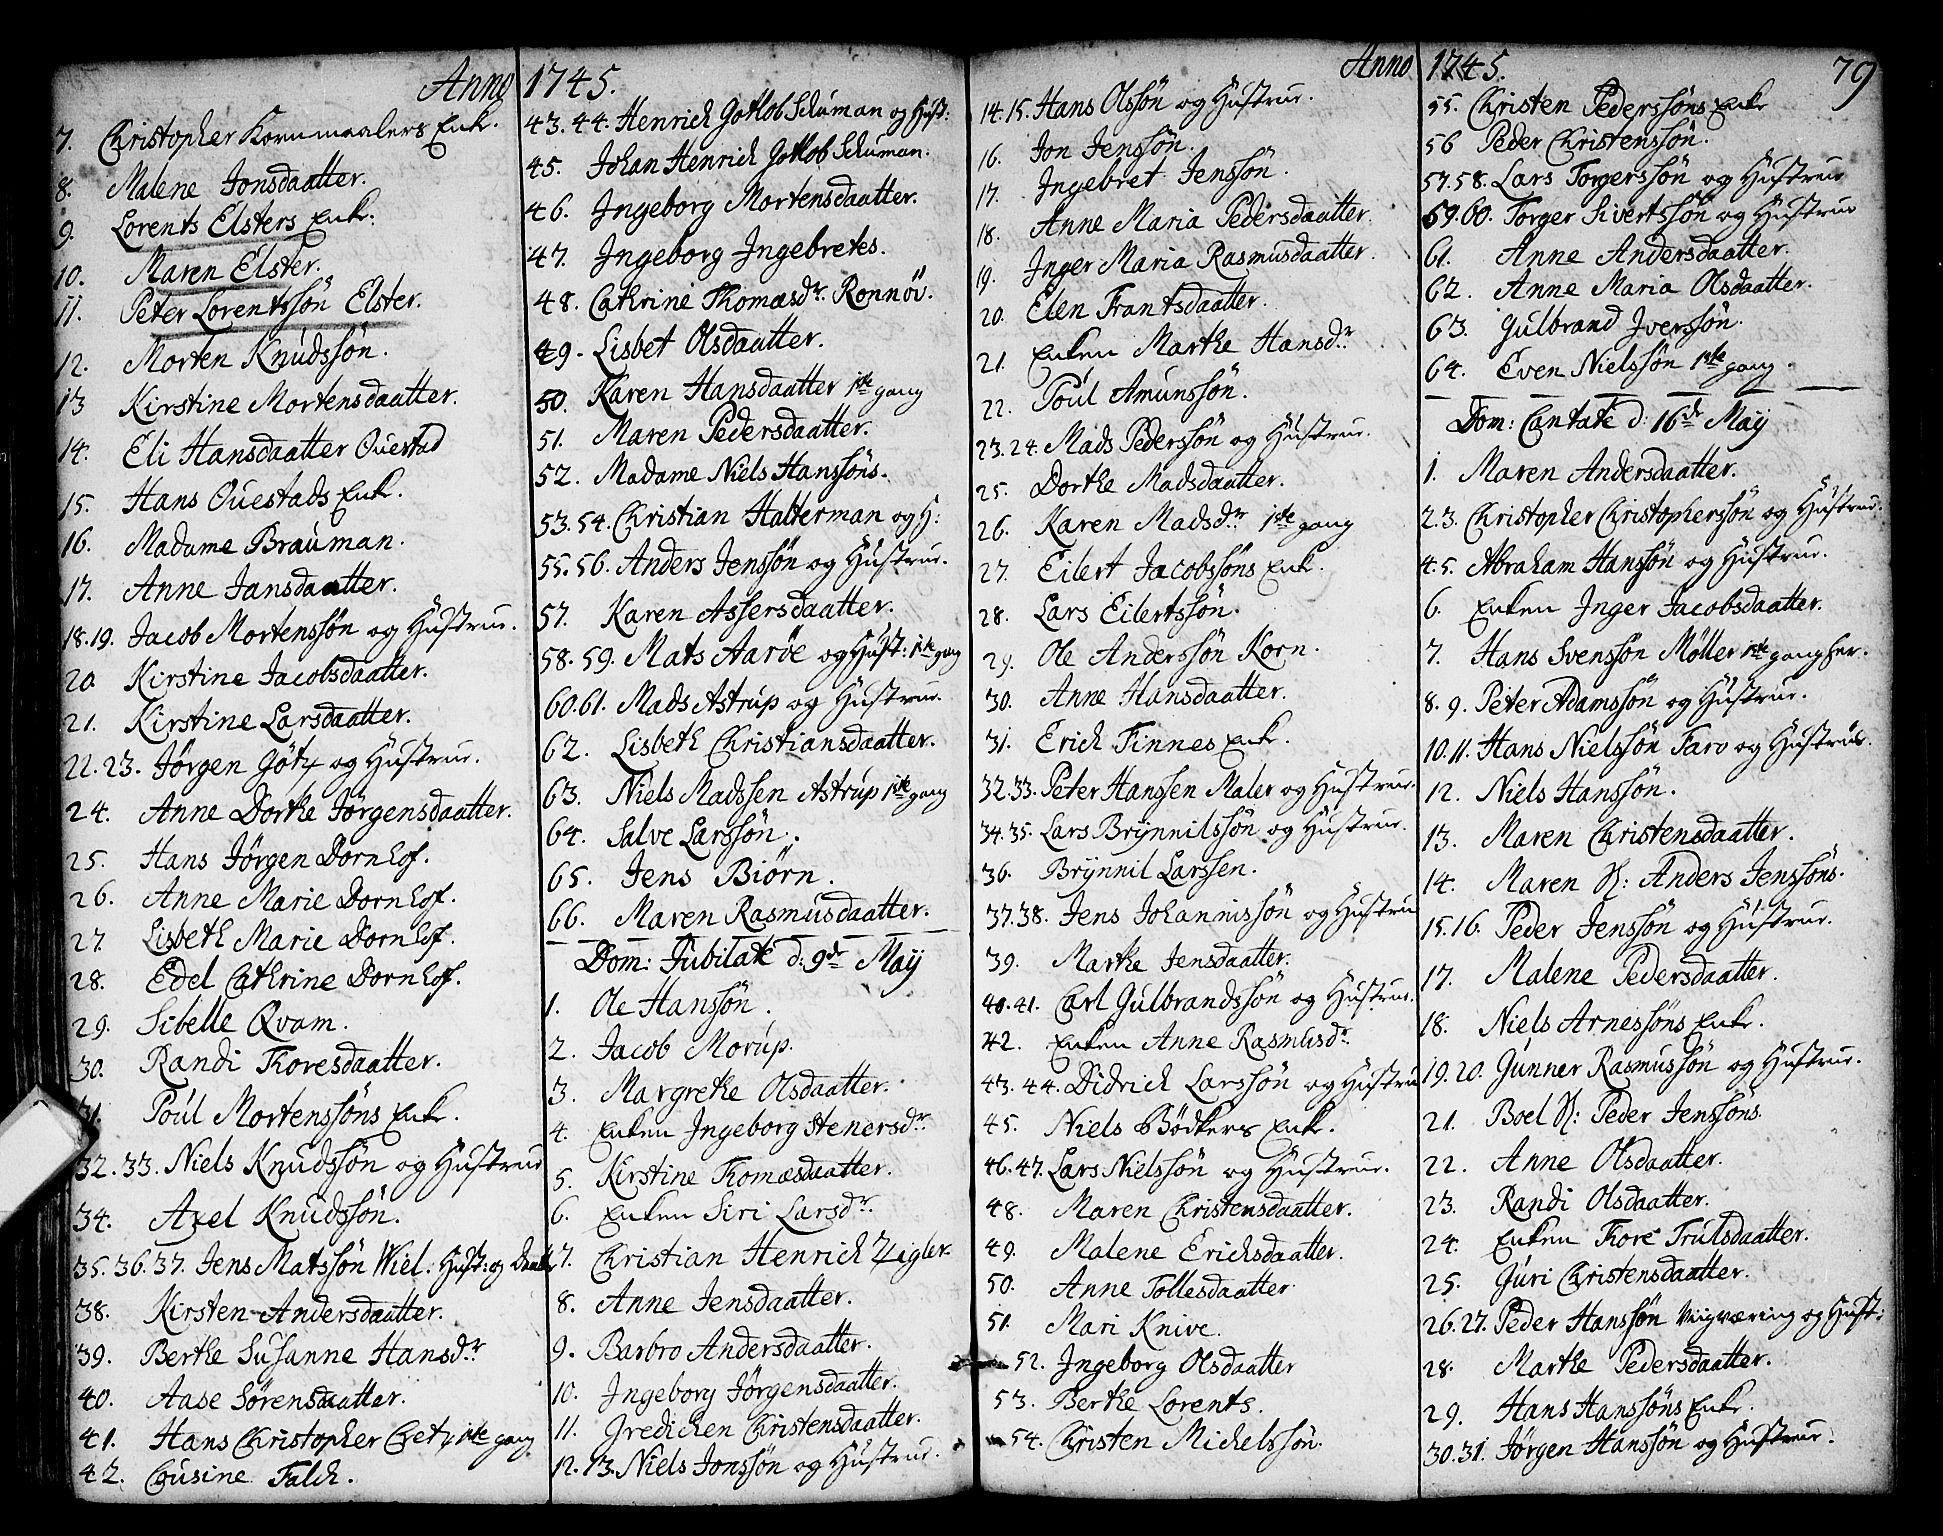 Anno 1745.
7. Christopher Kornmaalers Enke.
8. Malene Jonsdaatter.
9. Lorents Elsters Enke.
10. Maren Elster.
11. Peter Lorentssön Elster.
12. Morten Knudssön.
13 Kirstine Mortensdaatter.
14. Eli Hansdaatter Ouestad
15. Hans Ouestads Enke.
16. Madame Brauman.
17. Anne Jansdaatter.
18.19. Jacob Mortenssön og Hustrue.
20 Kirstine Jacobsdaatter.
21. Kirstine Larsdaatter.
22.23. Jörgen Götz og Hustrue.
24. Anne Dorthe Jörgensdaatter.
25. Hans Jörgen Dornhof.
26. Anne Marie Dornhof.
27. Lisbeth Marie Dornhof.
28. Edel Cathrine Dornhof.
29. Sibelle Qvam.
30. Randi Thoresdaatter.
31. Poul Mortenssöns Enke.
32.33. Niels Knudssön og Hustrue
34. Axel Knudssön.
35.36.37. Jens Matssön Wiel. Hust: og Daatter
38. Kirsten Andersdaatter.
39. Berthe Susanne Hansdr.
40. Aase Sörensdaatter.
41. Hans Christopher 1ste gang
42. Cousine Falch.
43.44. Henrich Gotlob Schuman og Hust:
45. Johan Henrich Gotlob Schuman.
46. Ingeborg Mortensdaatter.
47. Ingeborg Ingebretes.
48. Cathrine Thomæsdr. Ronnöv.
49. Lisbet Olsdaatter.
50. Karen Hansdaatter 1ste gang
51. Maren Pedersdaatter.
52. Madame Niels Hanssöns.
53.54. Christian Halterman og H:
55.56. Anders Jenssön og Hustrue.
57. Karen Assersdaatter.
58.59. Mats Aaröe og Hust: 1ste gang
60.61. Mads Astrup og Hustrue.
62. Lisbeth Christiansdaatter.
63. Niels Madssen Astrup 1ste gang
64. Salve Larssön.
65. Jens Biörn.
66. Maren Rasmusdaatter.
Dom: Jubilate d: 9de Maij
1. Ole Hanssön.
2. Jacob Morup.
3. Margrethe Olsdaatter.
4. Enken Ingeborg Stenersdr.
5. Kirstine Thomæsdaatter.
6. Enken Siri Larsdr.
7. Christian Henrich Zigler
8. Anne Jensdaatter.
9. Barbro Andersdaatter.
10. Ingeborg Jörgensdaatter.
11. Gredichen Christensdaatter.
12.13. Niels Jonssön og Hustrue.
Anno 1745. 79
14.15. Hans Olssön og Hustrue.
16. Jon Jenssön.
17. Ingebret Jenssön.
18. Anne Maria Pedersdaatter.
19. Inger Maria Rasmusdaatter.
20. Elen Frantsdaatter.
21. Enken Marthe Hansdr
22. Poul Amunssön.
23.24. Mads Pederssön og Hustrue.
25. Dorthe Madsdaatter.
26. Karen Madsdr 1ste gang
27. Eilert Jacobssöns Enke.
28. Lars Eilertssön.
29. Ole Anderssön Korn.
30. Anne Hansdaatter.
31. Erich Finnes Enke.
32.33. Peter Hanssen Maler og Hustrue.
34.35. Lars Brynnilssön og Hustrue.
36. Brynnil Larssen.
37.38. Jens Johannissön og Hustrue
39. Marthe Jensdaatter.
40.41. Carl Gulbrandssön og Hustrue.
42. Enken Anne Rasmusdr.
43.44. Didrich Larssön og Hustrue
45. Niels Bödkers Enke.
46.47. Lars Nielssön og Hustrue.
48. Maren Christensdaatter.
49. Malene Erichsdaatter.
50. Anne Tollesdaatter
51. Mari Knive.
52. Ingeborg Olsdaatter
53. Berthe Lorents.
54. Christen Michelssön.
55. Christen Pederssöns Enke
56 Peder Christenssön.
57.58. Lars Torgerssön og Hustrue
59.60. Torger Sivertssön og Hustrue
61. Anne Andersdaatter.
62. Anne Maria Olsdaatter.
63. Gulbrand Iverssön.
64. Even Nielssön 1ste gang.
Dom: Cantate d: 16de Maij
1. Maren Andersdaatter.
2.3. Christopher Christopherssön og Hustrue.
4.5. Abraham Hanssön og Hustrue.
6. Enken Inger Jacobsdaatter.
7. Hans Svenssön Möller 1ste gang her.
8.9. Peter Adamssön og Hustrue.
10.11. Hans Nielssön Farv og Hustrue.
12. Niels Hanssön.
13. Maren Christensdaatter.
14. Maren H: Anders Jenssöns.
15.16. Peder Jenssön og Hustrue.
17. Malene Pedersdaatter.
18. Niels Arnessöns Enke.
19.20. Gunner Rasmussön og Hustrue.
21. Boel H: Peder Jenssöns
22. Anne Olsdaatter.
23. Randi Olsdaatter.
24. Enken Thore Trulsdaatter.
25. Guri Christensdaatter.
26.27. Peder Hanssön Viigværing og Hust:
28. Marthe Pedersdaatter.
29. Hans Hanssöns Enke.
30.31. Jörgen Hanssön og Hustrue.